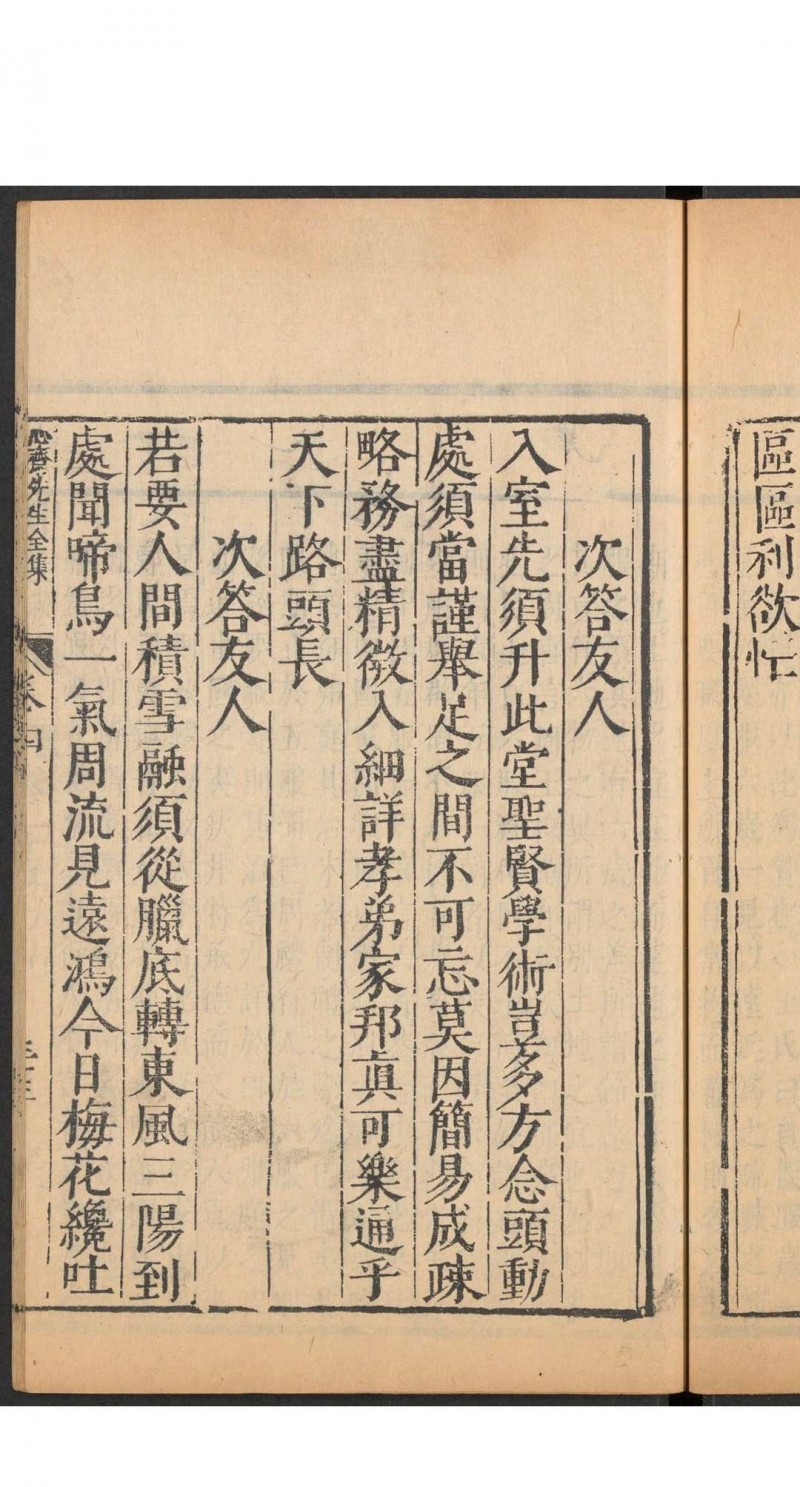 區區利欲忙
次答友人
入室先須升此堂聖賢學術豈多方念頭動
處須當謹舉足之間不可忘莫因簡易成疎
略務盡精微入細詳孝弟家邦真可樂通乎
天下路頭長
次答友人
若要人間積雪融須從臘底轉東風三陽到
處聞啼鳥一氣周流見遠鴻今日梅花纔吐
心齋先生全集
卷四